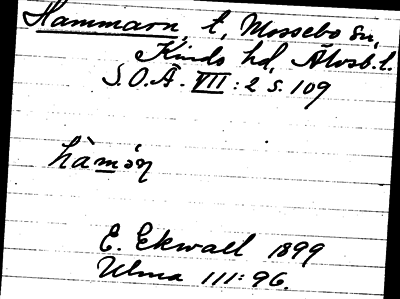 Hammarn, t, Mossebo sn,
Kinds hd, Älvsb. l.
S.O.Ä. VII: 2 s. 109
hàmən
E. Ekwall 1899
Ulma 111: 96.